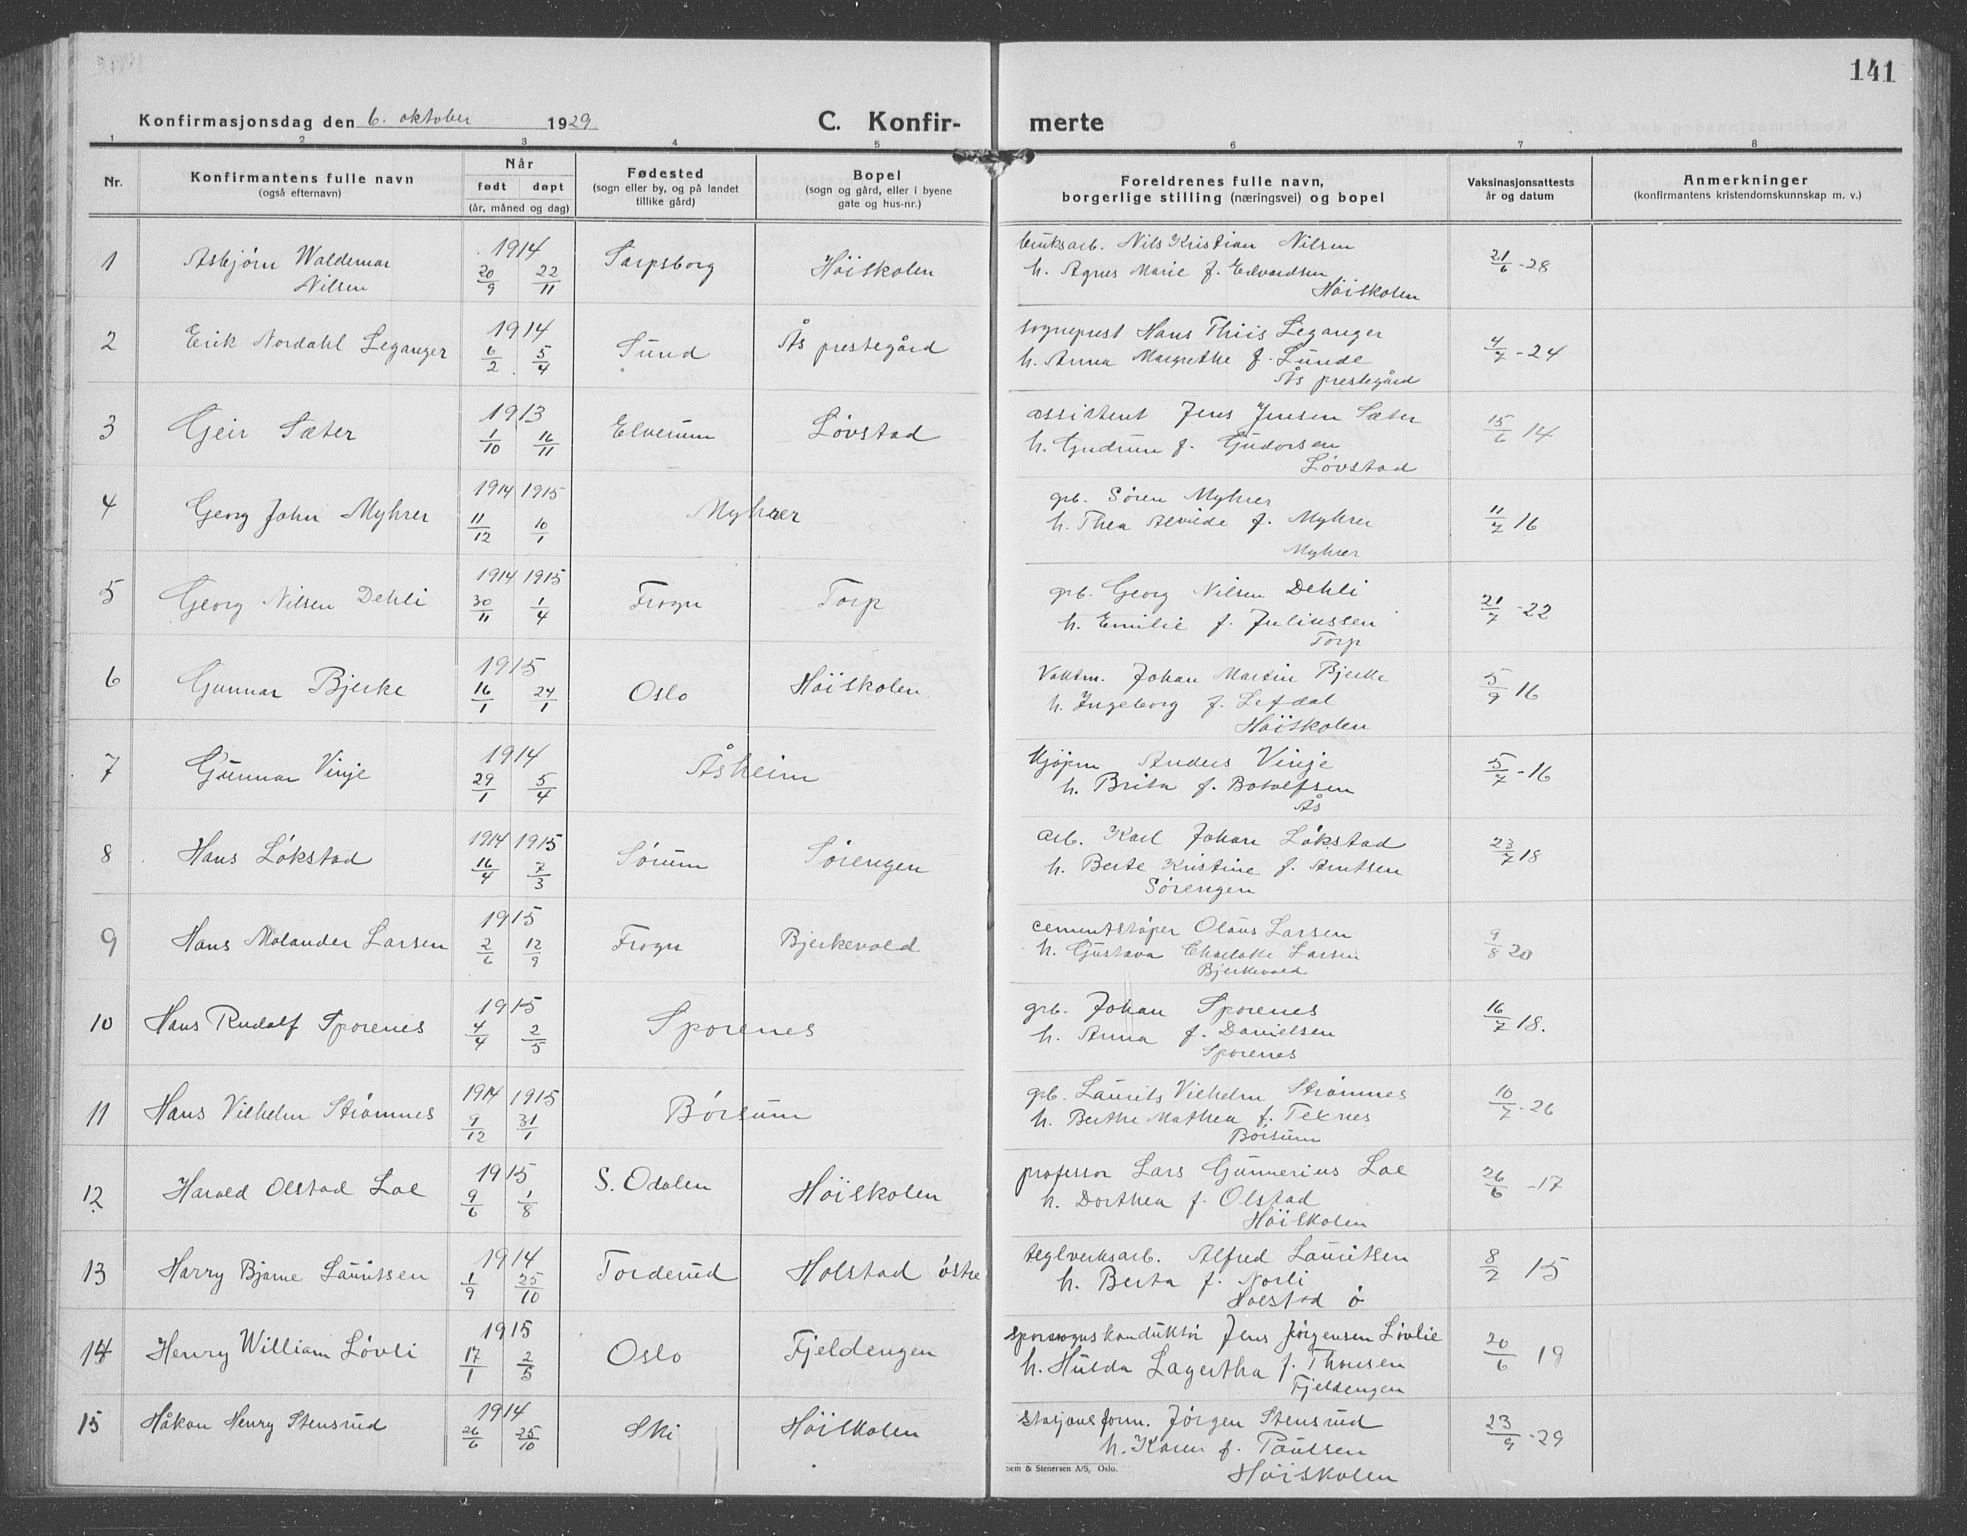 141
Konfirmasjonsdag den 6. oktober 1929
C. Konfir-merte
1 2 3 4 5 6 7 8
Nr.
Konfirmantens fulle navn
(også efternavn)
Når
født døpt
(år, måned og dag)
Fødested
(sogn eller by, og på landet
tillike gård)
Bopel
(sogn og gård, eller i byene
gate og hus-nr.)
Foreldrenes fulle navn,
borgerlige stilling (næringsvei) og bopel
Vaksinasjonsattests
år og datum
Anmerkninger
(konfirmantens kristendomskunnskap m. v.)
1 Asbjørn Waldemar Nilsen 1914 20/9 22/11 Sarpsborg Höiskolen
bruksarb. Nils Kristian Nilsen
h. Agnes Marie f. Edvardsen
Höiskolen
21/6 -28
2 Erik Nordahl Leganger 1914 6/2 5/4 Sund Ås prestegård
sogneprest Hans Thiis Leganger
h. Anna Margrethe f. Lunde
Ås prestegård
4/7 -24
3 Geir Sæter 1913 1/10 16/11 Elverum Løvstad
assistent Jens Jensen Sæter
h. Gudrun f. Gudorsen
Løvstad
15/6 14
4 Georg John Myhrer 1914 1915 11/12 10/1 Myhrer
grb. Søren Myhrer
h. Thea Alvilde f. Myhrer
Myhrer
11/7 16
5 Georg Nilsen Dehli 1914 1915 30/11 1/4 Frogn Torp
grb. Georg Nilsen Dehli
h. Emilie f. Juliussen
Torp
21/7 -22
6 Gunnar Bjerke 1915 16/1 24/1 Oslo Höiskolen
Vaktm. Johan Martin Bjerke
h. Ingeborg f. Lefdal
Höiskolen
5/9 16
7 Gunnar Vinje 1914 29/1 5/4 Åsheim
kjøpm Anders Vinje
h. Brita f. Botolfsen
Ås
5/7 -16
8 Hans Løkstad 1914 1915 16/4 7/3 Sørum Sørengen
arb. Karl Johan Løkstad
h. Berte Kristine f. Arntsen
Sørengen
23/7 18
9 Hans Molander Larsen 1915 2/6 12/9 Frogn Bjerkevold
cementstøper Olaus Larsen
h. Gustava Charlotte Larsen
Bjerkevold
9/8 20
10 Hans Rudolf Sporenes 1915 4/4 2/5 Sporenes
grb. Johan Sporenes
h. Anna f. Danielsen
Sporenes
16/7 18.
11 Hans Vilhelm Strømnes 1914 1915 9/12 31/1 Børsum
grb. Laurits Vilhelm Strømnes
h. Berthe Mathea f. Texnes
Børsum
10/7 -26
12 Harald Olstad Loe 1915 9/6 1/8 S. Odalen Höiskolen
professor Lars Gunnerius Loe
h. Dorthea f. Olstad
Höiskolen
26/6 -17
13 Harry Bjarne Lauritsen 1914 1/9 25/10 Torderud Holstad østre
teglverksarb. Alfred Lauritsen
h. Berta f. Norli
Holstad ø
8/2 15
14 Henry William Løvli 1915 17/1 2/5 Oslo Fjeldengen
sporvognskonduktør Jens Jørgensen Løvlie
h. Hulda Lagertha f. Thonsen
Fjeldengen
20/6 19
15 Håkon Henry Stensrud 1914 26/6 25/10 Ski Höiskolen
stasjonsform. Jørgen Stensrud
h. Karen f. Paulsen
Höiskolen
23/9 -29
Sem & Stenersen A/S, Oslo.